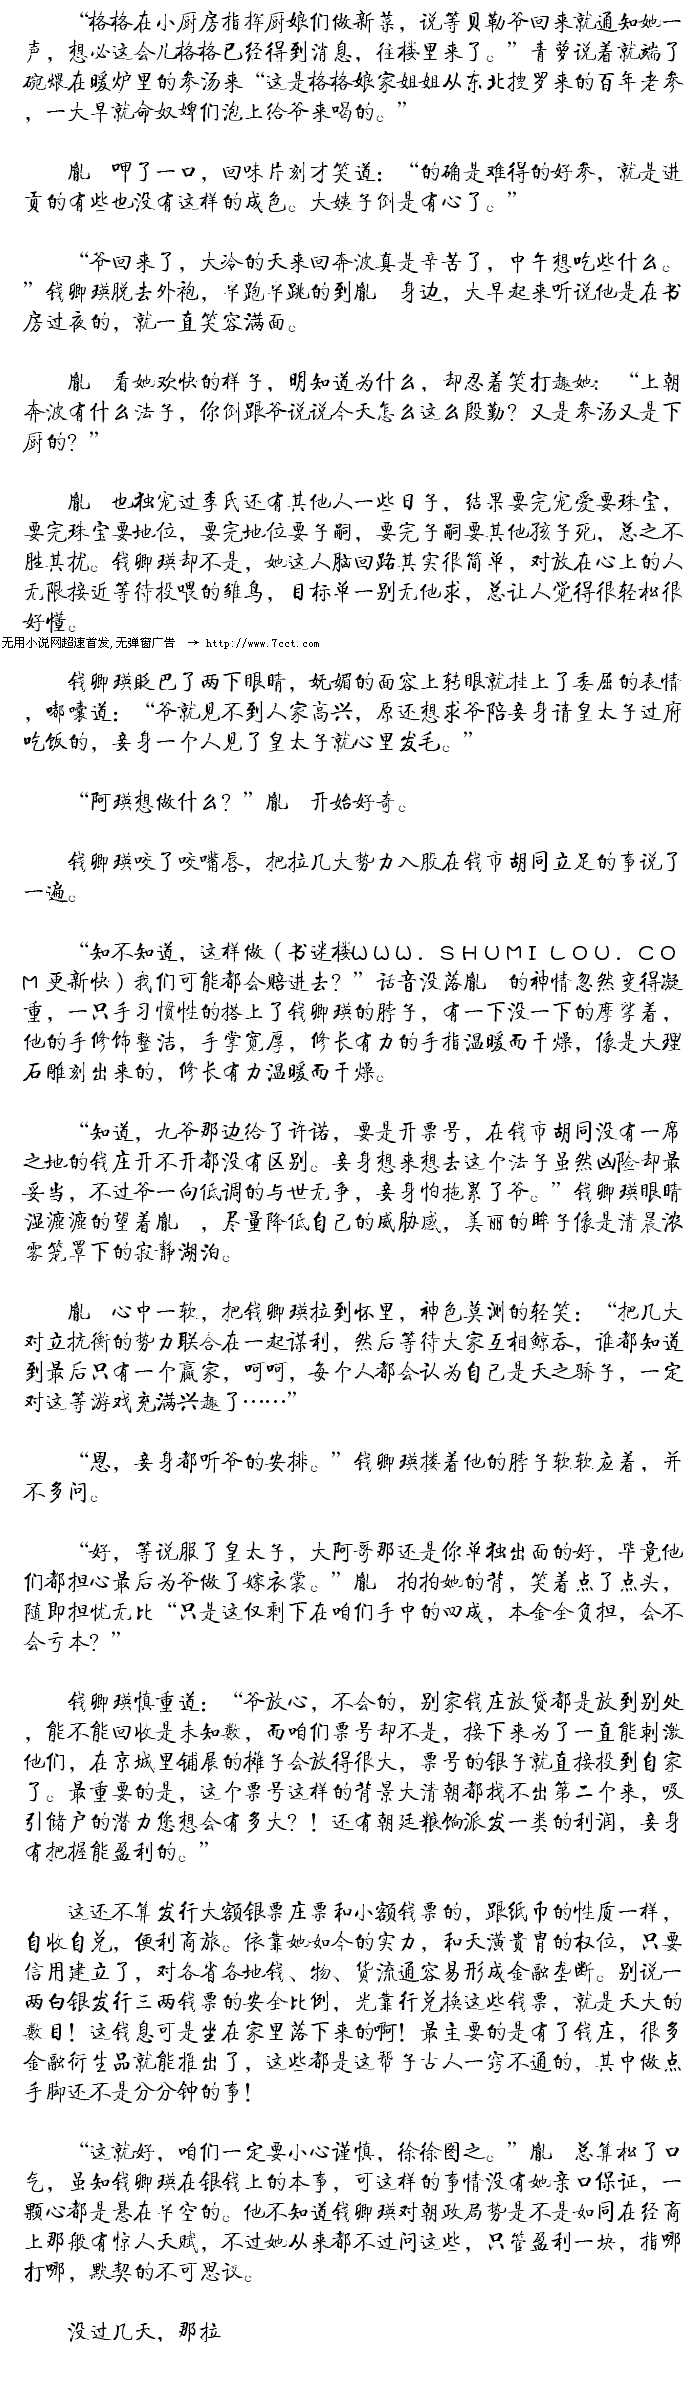 “格格在小厨房指挥厨娘们做新菜，说等贝勒爷回来就通知她一
声，想必这会儿格格已经得到消息，往楼里来了。”青萝说着就端了
碗煨在暖炉里的参汤来“这是格格娘家姐姐从东北搜罗来的百年老参
，一大早就命奴婢们泡上给爷来喝的。”
胤　呷了一口，回味片刻才笑道：“的确是难得的好参，就是进
贡的有些也没有这样的成色。大姨子倒是有心了。”
“爷回来了，大冷的天来回奔波真是辛苦了，中午想吃些什么。
”钱卿瑛脱去外袍，半跑半跳的到胤　身边，大早起来听说他是在书
房过夜的，就一直笑容满面。
胤　看她欢快的样子，明知道为什么，却忍着笑打趣她：“上朝
奔波有什么法子，你倒跟爷说说今天怎么这么殷勤？又是参汤又是下
厨的？”
胤　也独宠过李氏还有其他人一些日子，结果要完宠爱要珠宝，
要完珠宝要地位，要完地位要子嗣，要完子嗣要其他孩子死，总之不
胜其扰。钱卿瑛却不是，她这人脑回路其实很简单，对放在心上的人
无限接近等待投喂的雏鸟，目标单一别无他求，总让人觉得很轻松很
好懂。
无用小说网超速首发,无弹窗广告　→ http://www.7cct.com
钱卿瑛眨巴了两下眼睛，妩媚的面容上转眼就挂上了委屈的表情
，嘟囔道：“爷就见不到人家高兴，原还想求爷陪妾身请皇太子过府
吃饭的，妾身一个人见了皇太子就心里发毛。”
“阿瑛想做什么？”胤　开始好奇。
钱卿瑛咬了咬嘴唇，把拉几大势力入股在钱市胡同立足的事说了
一遍。
“知不知道，这样做（书迷楼ＷＷＷ．ＳＨＵＭＩＬＯＵ．ＣＯ
Ｍ更新快）我们可能都会赔进去？”话音没落胤　的神情忽然变得凝
重，一只手习惯性的搭上了钱卿瑛的脖子，有一下没一下的摩挲着，
他的手修饰整洁，手掌宽厚，修长有力的手指温暖而干燥，像是大理
石雕刻出来的，修长有力温暖而干燥。
“知道，九爷那边给了许诺，要是开票号，在钱市胡同没有一席
之地的钱庄开不开都没有区别。妾身想来想去这个法子虽然凶险却最
妥当，不过爷一向低调的与世无争，妾身怕拖累了爷。”钱卿瑛眼睛
湿漉漉的望着胤　，尽量降低自己的威胁感，美丽的眸子像是清晨浓
雾笼罩下的寂静湖泊。
胤　心中一软，把钱卿瑛拉到怀里，神色莫测的轻笑：“把几大
对立抗衡的势力联合在一起谋利，然后等待大家互相鲸吞，谁都知道
到最后只有一个赢家，呵呵，每个人都会认为自己是天之骄子，一定
对这等游戏充满兴趣了……”
“恩，妾身都听爷的安排。”钱卿瑛搂着他的脖子软软应着，并
不多问。
“好，等说服了皇太子，大阿哥那还是你单独出面的好，毕竟他
们都担心最后为爷做了嫁衣裳。”胤　拍拍她的背，笑着点了点头，
随即担忧无比“只是这仅剩下在咱们手中的四成，本金全负担，会不
会亏本？”
钱卿瑛慎重道：“爷放心，不会的，别家钱庄放贷都是放到别处
，能不能回收是未知数，而咱们票号却不是，接下来为了一直能刺激
他们，在京城里铺展的摊子会放得很大，票号的银子就直接投到自家
了。最重要的是，这个票号这样的背景大清朝都找不出第二个来，吸
引储户的潜力您想会有多大？！还有朝廷粮饷派发一类的利润，妾身
有把握能盈利的。”
这还不算发行大额银票庄票和小额钱票的，跟纸币的性质一样，
自收自兑，便利商旅。依靠她如今的实力，和天潢贵胄的权位，只要
信用建立了，对各省各地钱、物、货流通容易形成金融垄断。别说一
两白银发行三两钱票的安全比例，光靠行兑换这些钱票，就是天大的
数目！这钱息可是坐在家里落下来的啊！最主要的是有了钱庄，很多
金融衍生品就能推出了，这些都是这帮子古人一窍不通的，其中做点
手脚还不是分分钟的事！
“这就好，咱们一定要小心谨慎，徐徐图之。”胤　总算松了口
气，虽知钱卿瑛在银钱上的本事，可这样的事情没有她亲口保证，一
颗心都是悬在半空的。他不知道钱卿瑛对朝政局势是不是如同在经商
上那般有惊人天赋，不过她从来都不过问这些，只管盈利一块，指哪
打哪，默契的不可思议。
没过几天，那拉